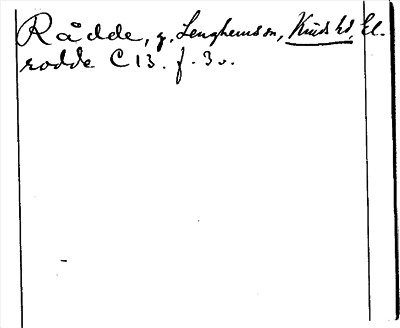 Rådde, g, Lenghemssn, Kinds hd, El.
rodde C 13. f. 3 v.